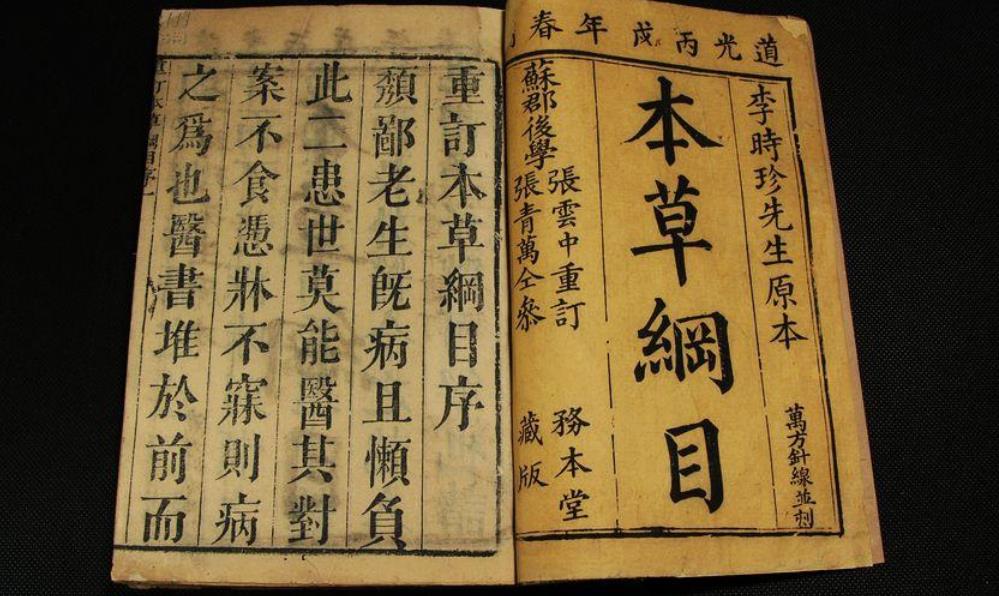 道光丙戌年春
李時珍先生原本
萬方針線並刻
本草綱目
蘇郡後學
張雲中重訂
張青萬仝參
務本堂
藏版
重訂本草綱目序
頽鄙老生旣病且懶負
此二患世莫能醫其對
案不食憑牀不寐則病
之爲也醫書堆於前而
訂本草綱目序一